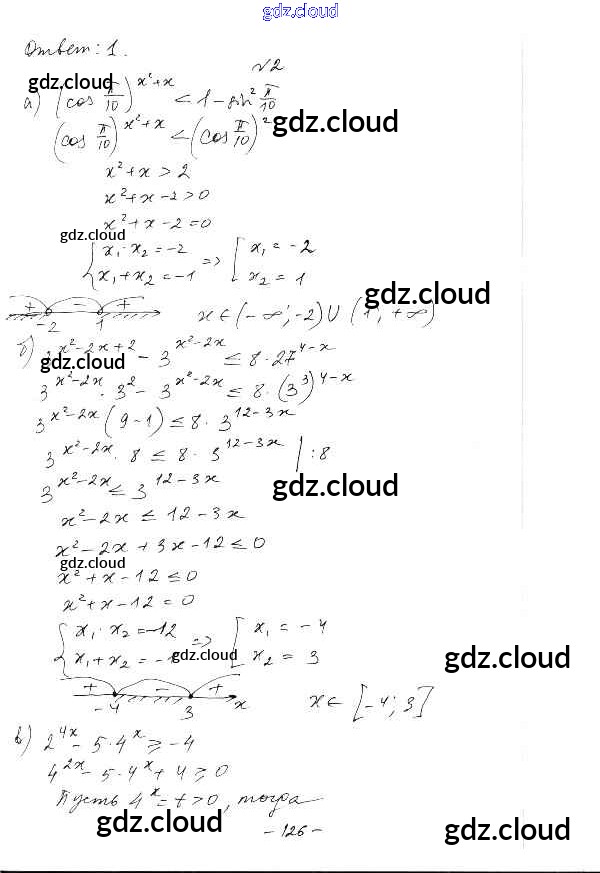 gdz.cloud
Ответ: 1.
№2
gdz.cloud
а) (cos π/10)^(x²+x) < 1 - sin² π/10
gdz.cloud
(cos π/10)^(x²+x) < (cos π/10)²
x² + x > 2
x² + x - 2 > 0
x² + x - 2 = 0
gdz.cloud
{ x₁ · x₂ = -2 => [ x₁ = -2
x₁ + x₂ = -1 x₂ = 1
gdz.cloud
+ - +
-2 1 x ∈ (-∞; -2) ∪ (1; +∞)
б) 3^(x²-2x+2) - 3^(x²-2x) ≤ 8 · 27^(4-x)
gdz.cloud
3^(x²-2x) · 3² - 3^(x²-2x) ≤ 8 · (3³)^(4-x)
3^(x²-2x) (9 - 1) ≤ 8 · 3^(12-3x)
3^(x²-2x) · 8 ≤ 8 · 3^(12-3x) | : 8
gdz.cloud
3^(x²-2x) ≤ 3^(12-3x)
gdz.cloud
x² - 2x ≤ 12 - 3x
x² - 2x + 3x - 12 ≤ 0
gdz.cloud
x² + x - 12 ≤ 0
x² + x - 12 = 0
{ x₁ · x₂ = -12 => [ x₁ = -4
x₁ + x₂ = -1 x₂ = 3
gdz.cloud
gdz.cloud
+ - +
-4 3 x x ∈ [-4; 3]
в) 2^(4x) - 5 · 4^x ≥ -4
4^(2x) - 5 · 4^x + 4 ≥ 0
Пусть 4^x = t > 0, тогда
gdz.cloud
- 126 -
gdz.cloud